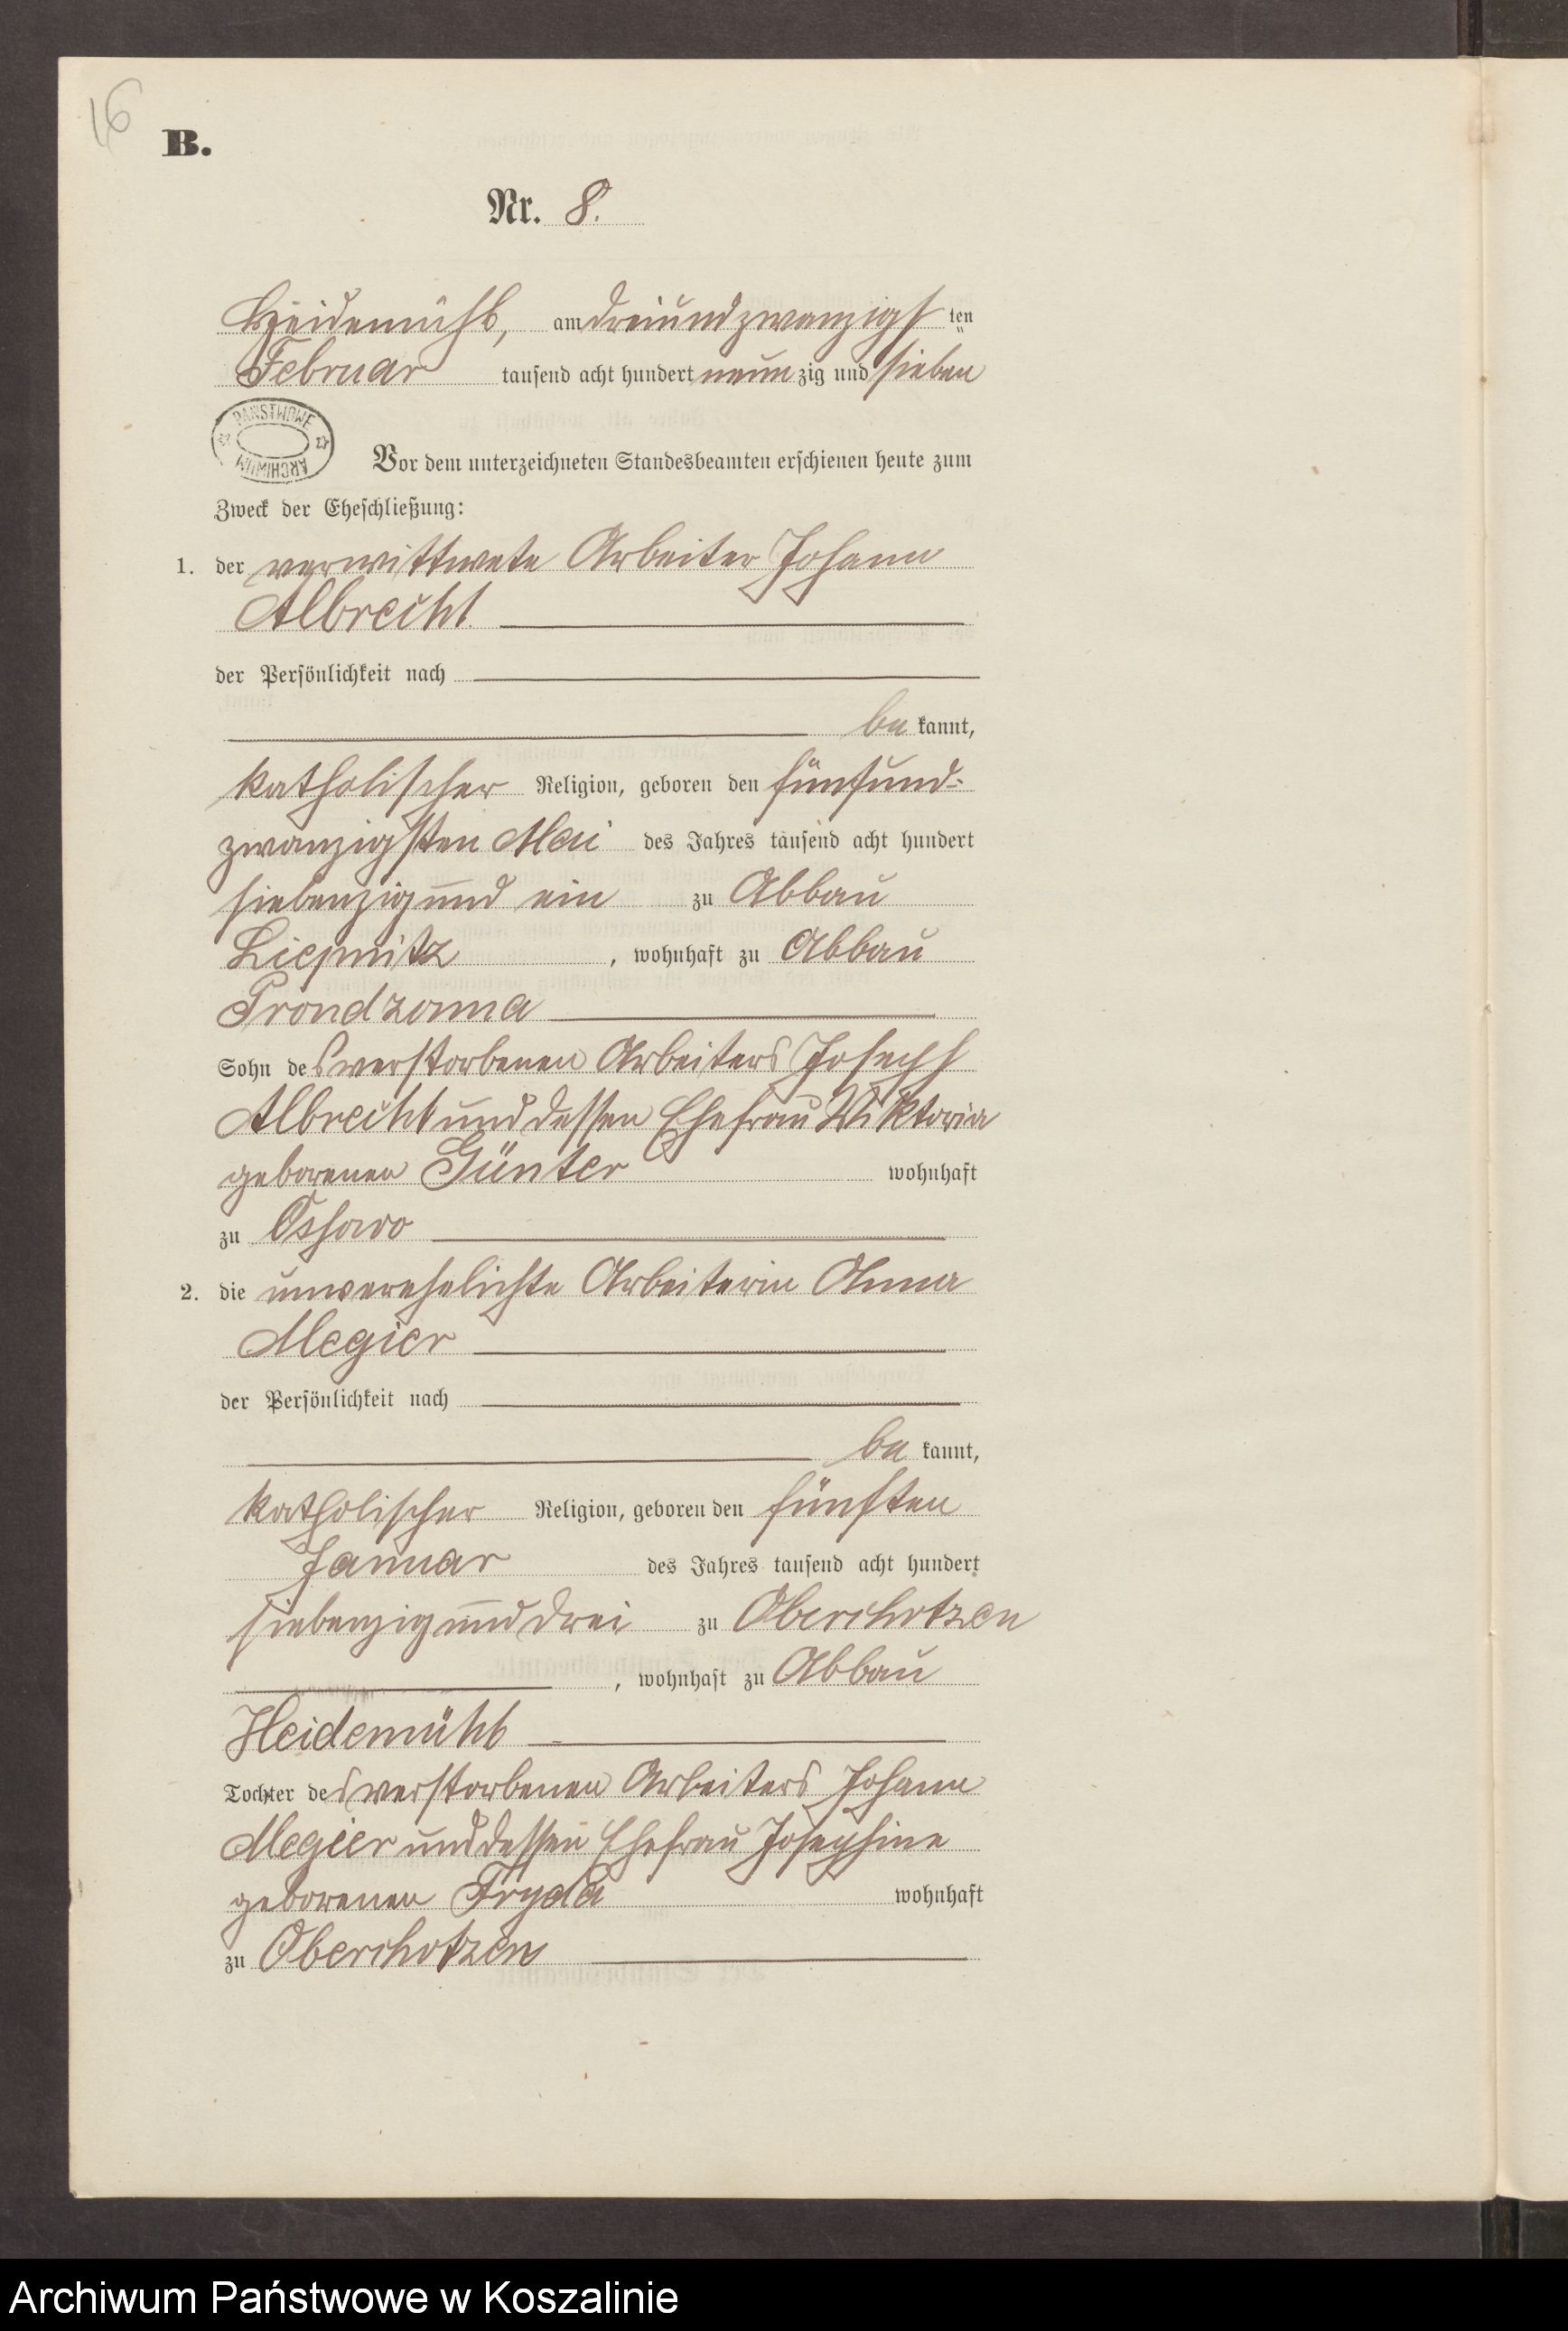 16
B.
Nr. 8.
Heidemühl, am dreiundzwanzigsten
Februar tausend acht hundert neunzig und sieben
PAŃSTWOWE
ARCHIWUM
Vor dem unterzeichneten Standesbeamten erschienen heute zum
Zweck der Eheschließung:
1. der verwittwete Arbeiter Johann
Albrecht
der Persönlichkeit nach
be kannt,
katholischer Religion, geboren den fünfund-
zwanzigsten Mai des Jahres tausend acht hundert
siebenzig und ein zu Abbau
Liepnitz, wohnhaft zu Abbau
Prondzonna
Sohn des verstorbenen Arbeiters Joseph
Albrecht und dessen Ehefrau Wiktoria
geborenen Günter wohnhaft
zu Ossowo
2. die unverehelichte Arbeiterin Anna
Megier
der Persönlichkeit nach
be kannt,
katholischer Religion, geboren den fünften
Januar des Jahres tausend acht hundert
siebenzig und drei zu Oberchotzen
, wohnhaft zu Abbau
Heidemühl
Tochter des verstorbenen Arbeiters Johann
Megier und dessen Ehefrau Josephine
geborenen Fryda wohnhaft
zu Oberchotzen
Archiwum Państwowe w Koszalinie